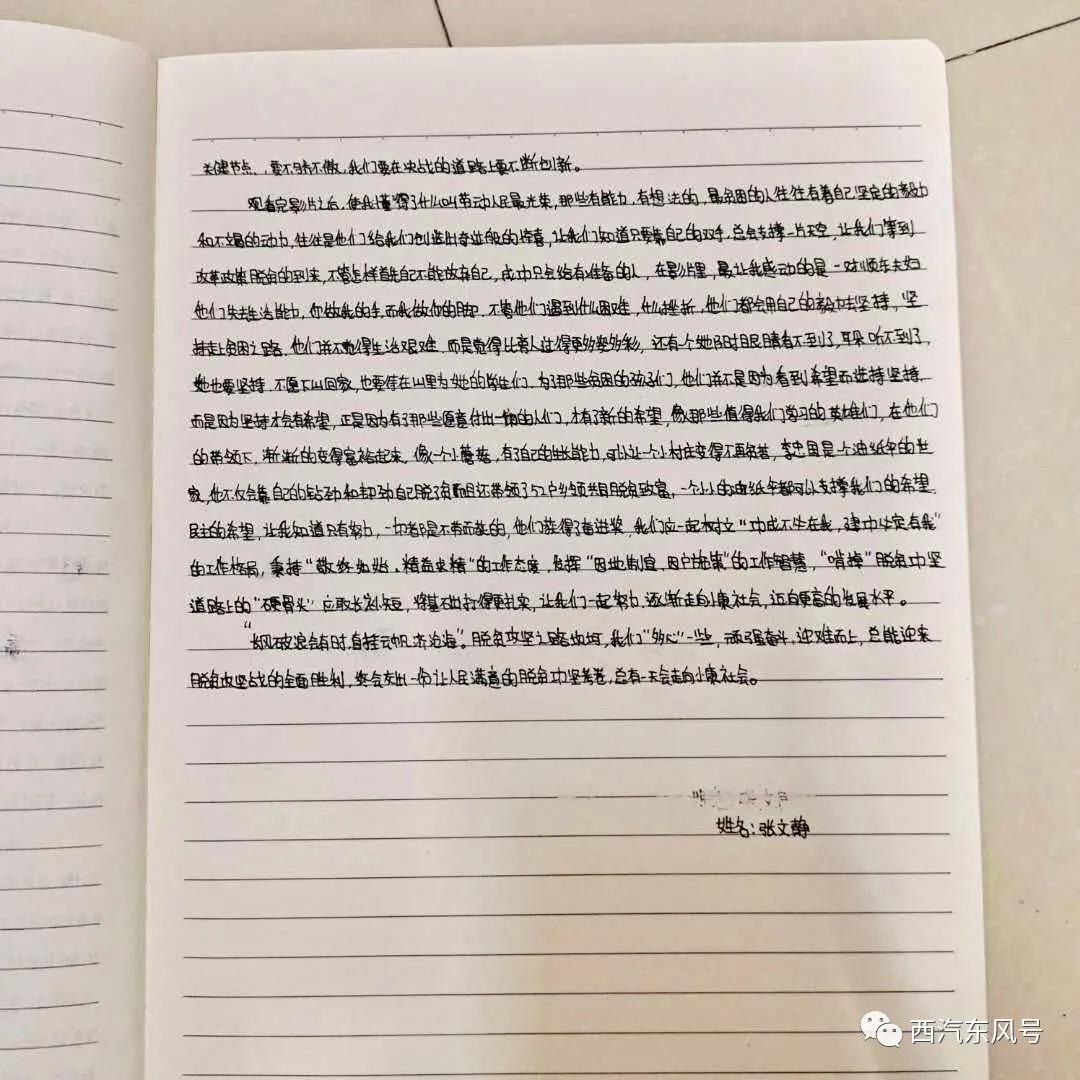 关键节点、要不骄不傲，我们要在决战的道路上要不断创新。
观看完影片之后，使我懂得了什么叫劳动人民最光荣，那些有能力，有想法的，最贫困的人往往有着自己坚定的毅力
和不竭的动力，往往是他们给我们创造出奇迹般的惊喜，让我们知道只要靠自己的双手，总会支撑一片天空，让我们等到
改革政策脱贫的到来，不管怎样首先自己不能放弃自己，成功只会给有准备的人，在影片里，最让我感动的是一对夫妇
他们失去生活能力，你做我的手，而我做你的脚，不管他们遇到什么困难，什么挫折，他们都会用自己的毅力去坚持，坚
持走上贫困之路，他们并不觉得生活艰难，而是觉得比旁人过得更多姿多彩，还有一个她即时眼睛看不到了，耳朵听不到了，
她也要坚持，不愿下山回家，也要停在山里为她的学生们，为了那些贫困的孩子们，他们并不是因为看到希望而选择坚持，
而是因为坚持才会有希望，正是因为有了那些愿意付出一切的人们，才有了新的希望，像那些值得我们学习的英雄们，在他们
的带领下，渐渐的变得富裕起来，像一个小蘑菇，有了自己的生长能力，可以让一个小村庄变得不再贫苦，李忠国是一个油纸伞的世
家，他不仅会靠自己的钻劲和韧劲自己脱了贫而且还带领了52户乡领共同脱贫致富，一个小小的油纸伞都可以支撑我们的希望，
民主的希望，让我知道只有努力，一切都是不劳而获的，他们获得了奋进奖，我们应一起树立“功成不必在我，建功必定有我”
的工作格局，秉持“敬终如始，精益求精”的工作态度，发挥“因地制宜，因户施策”的工作智慧，“啃掉”脱贫功坚
道路上的“硬骨头”应取长补短，将基础打得更扎实，让我们一起努力，逐渐走向小康社会，迈向更高的发展水平。
“长风破浪会有时，直挂云帆济沧海”。脱贫攻坚之路坎坷，我们“多心”一些，顽强奋斗，迎难而上，总能迎来
脱贫攻坚战的全面胜利，终会交出一份让人民满意的脱贫功坚考卷，总有一天会走向小康社会。
姓名：张文静
西汽东风号